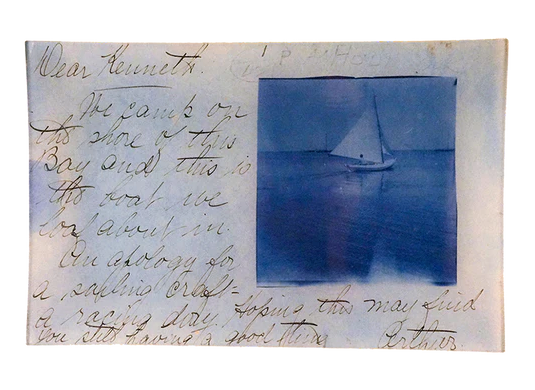 Dear Kenneth.
We camp on
the shore of this
Bay and this is
the boat we
loaf about in.
An apology for
a sailing craft -
a racing dory. Hoping this may find
you still having a good time
Arthur.